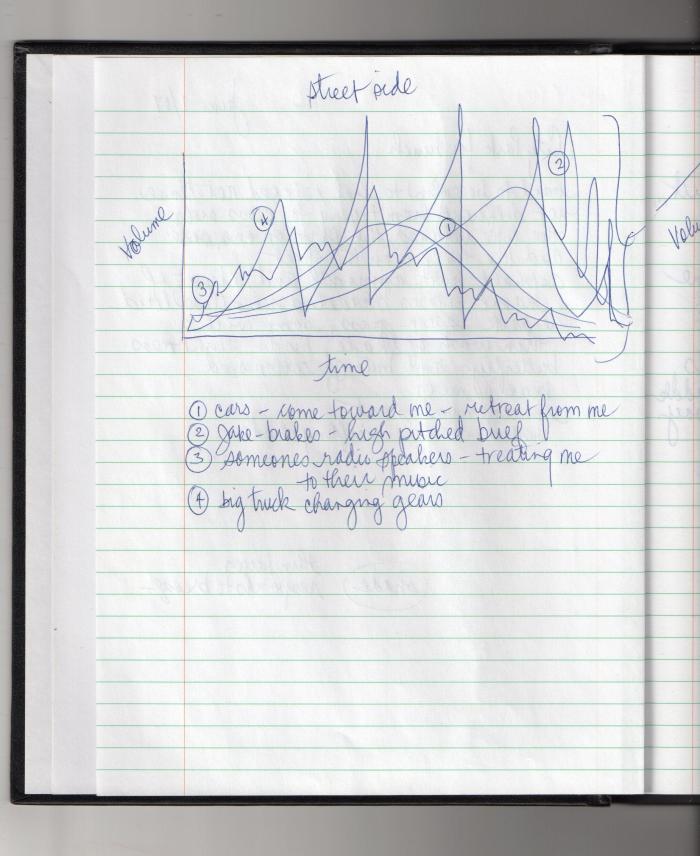 street side
Volume
4
1
2
3
Volu
time
1 cars - come toward me - retreat from me
2 Jake-brakes - high pitched brief
3 someones radio speakers - treating me
to their music
4 big truck changing gears